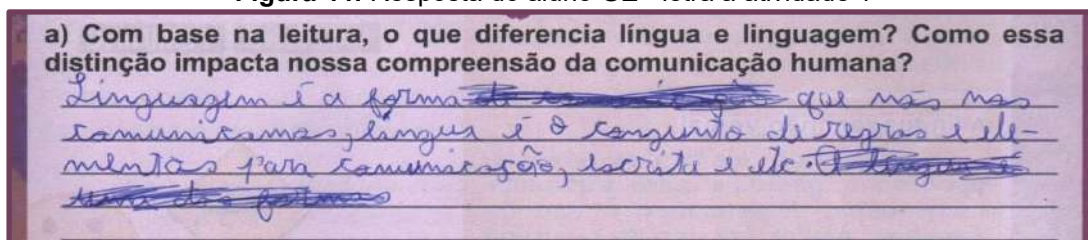 a) Com base na leitura, o que diferencia língua e linguagem? Como essa
distinção impacta nossa compreensão da comunicação humana?
Linguagem é a forma que nós nos
comunicamos, língua é o conjunto de regras e ele-
mentos para comunicação, escrita e etc.